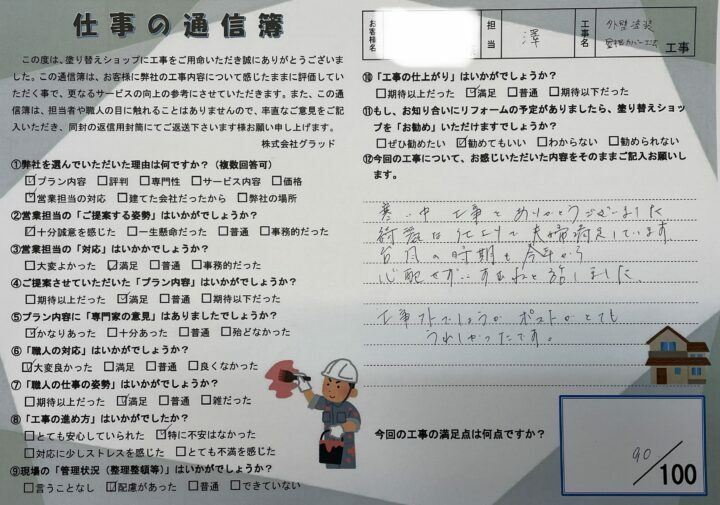 仕事の通信簿
この度は、塗り替えショップに工事をご用命いただき誠にありがとうございま
した。この通信簿は、お客様に弊社の工事内容について感じたままに評価していただ
く事で、更なるサービスの向上の参考にさせていただきます。また、この通
信簿は、担当者や職人の目に触れることはありませんので、率直なご意見をご記
入いただき、同封の返信用封筒にてご返送下さいます様お願い申し上げます。
株式会社グラッド
①弊社を選んでいただいた理由は何ですか？（複数回答可）
☑プラン内容 □評判 □専門性 □サービス内容 □価格
☑営業担当の対応 □建てた会社だったから □弊社の場所
②営業担当の「ご提案する姿勢」はいかがでしょうか？
☑十分誠意を感じた □一生懸命だった □普通 □事務的だった
③営業担当の「対応」はいかがでしょうか？
□大変よかった ☑満足 □普通 □事務的だった
④ご提案させていただいた「プラン内容」はいかがでしょうか？
□期待以上だった ☑満足 □普通 □期待以下だった
⑤プラン内容に「専門家の意見」はありましたでしょうか？
☑かなりあった □十分あった □普通 □殆どなかった
⑥「職人の対応」はいかがでしょうか？
☑大変良かった □満足 □普通 □良くなかった
⑦「職人の仕事の姿勢」はいかがでしょうか？
□期待以上だった ☑満足 □普通 □雑だった
⑧「工事の進め方」はいかがでしたか？
□とても安心していられた ☑特に不安はなかった
□対応に少しストレスを感じた □とても不満を感じた
⑨現場の「管理状況（整理整頓等）」はいかがでしょうか？
□言うことなし ☑配慮があった □普通 □できていない
お客様名
担当 澤
工事名 外壁塗装
屋根カバー工法 工事
⑩「工事の仕上がり」はいかがでしょうか？
□期待以上だった ☑満足 □普通 □期待以下だった
⑪もし、お知り合いにリフォームの予定がありましたら、塗り替えショッ
プを「お勧め」いただけますでしょうか？
□ぜひ勧めたい ☑勧めてもいい □わからない □勧められない
⑫今回の工事について、お感じいただいた内容をそのままご記入お願いし
ます。
寒い中工事をありがとうございました
綺麗な仕上りで夫婦満足しています
台風の時期も今年から
心配せずいすむねと話しました。
工事スト でしょうか ポストがとても
うれしかったです。
今回の工事の満足点は何点ですか？
90/100